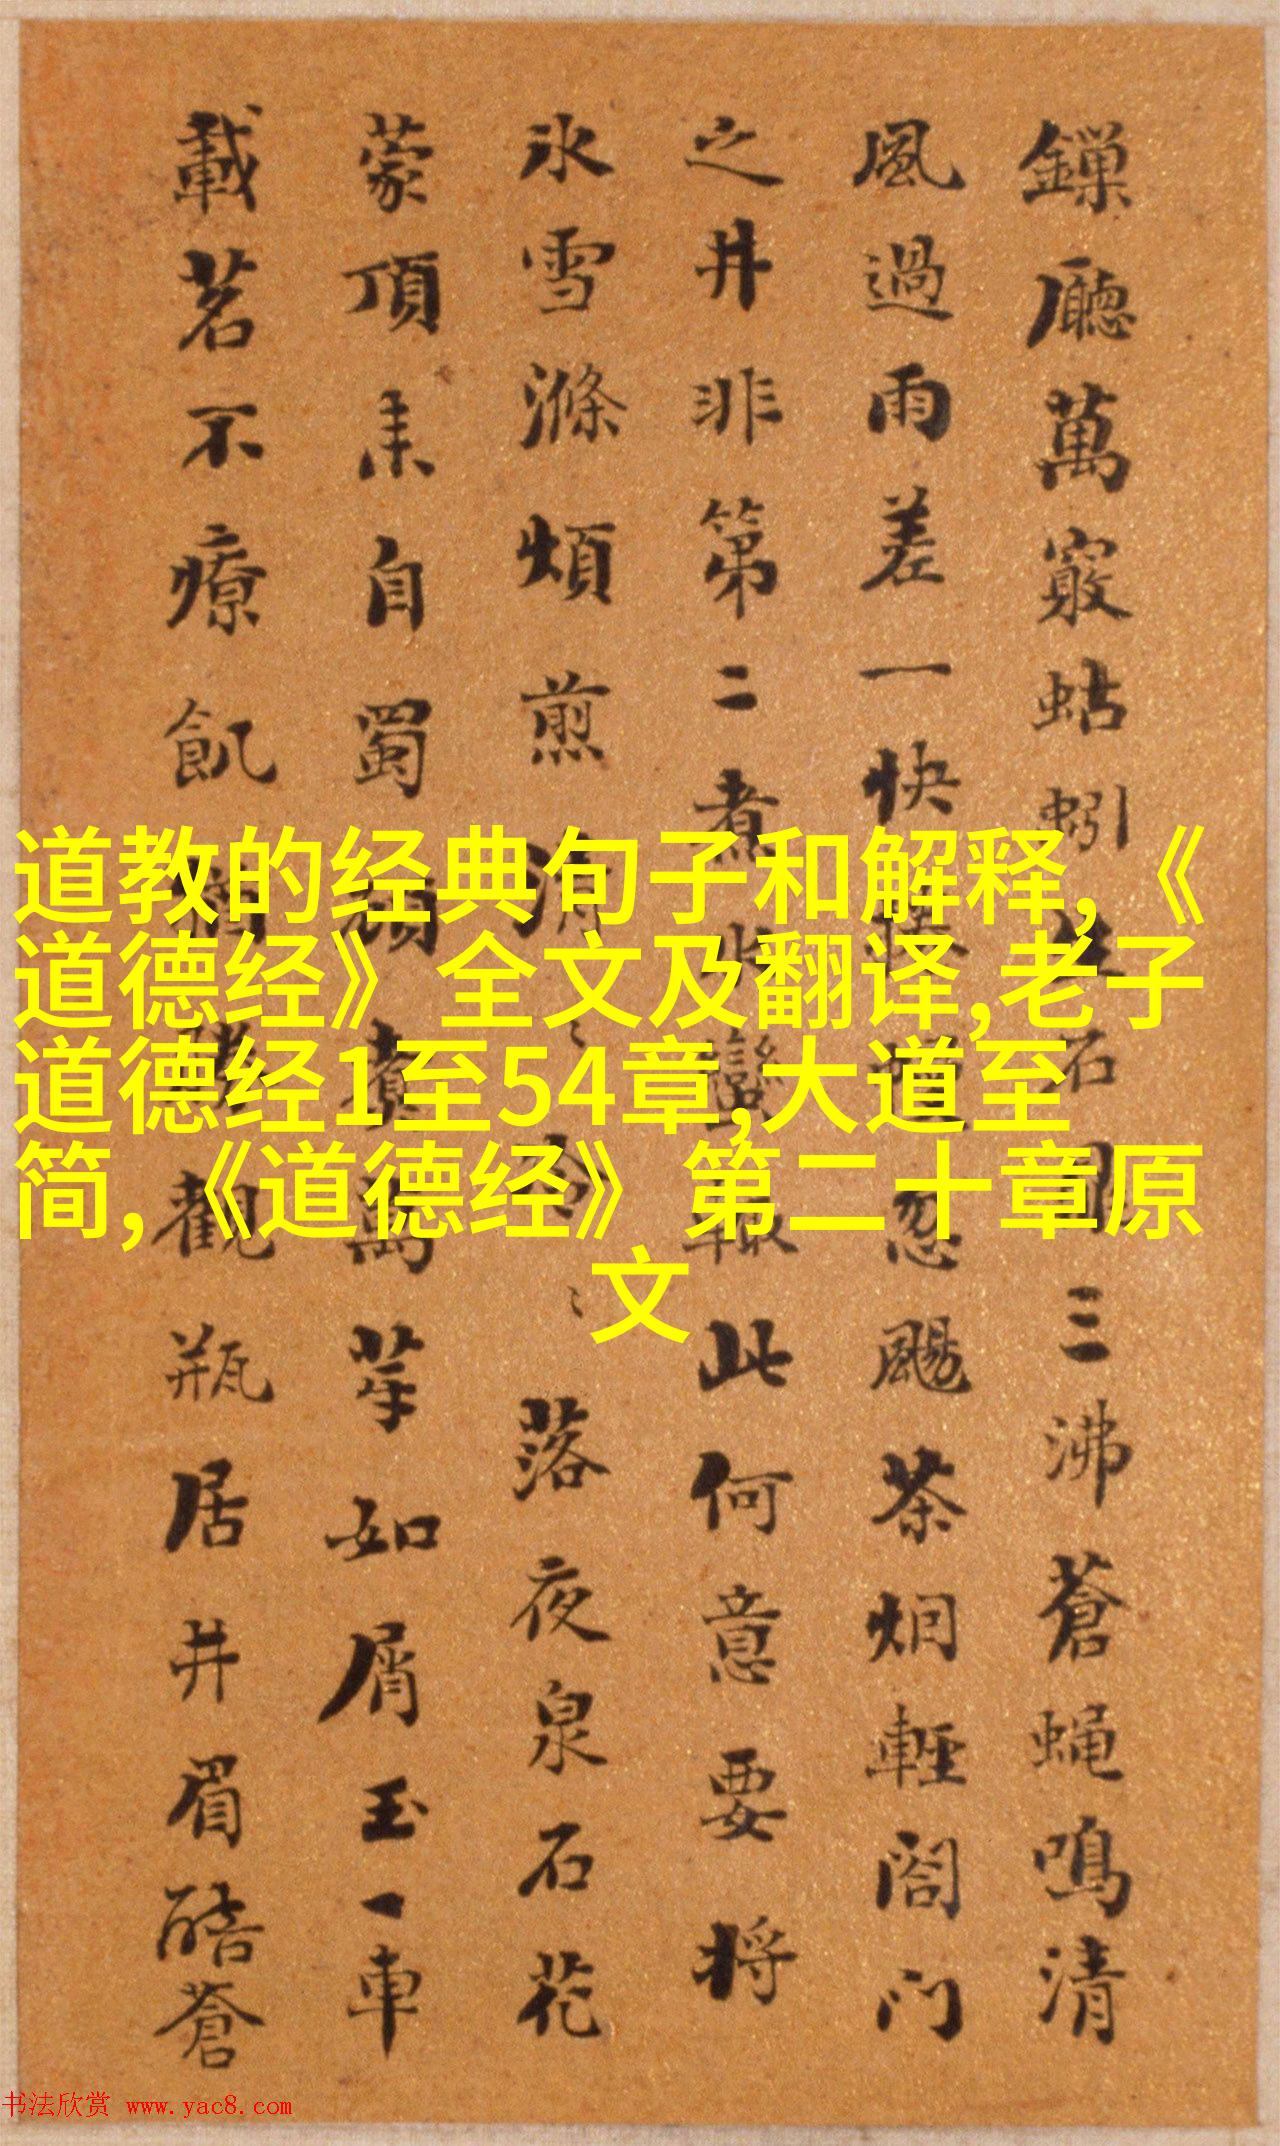 廳萬竅蚓石三沸蒼蠅鳴清
風過雨差一快忽颺茶烟輕閤門
之井非第二煮此何意要将
氷雪滌煩煎落夜泉石花
蒙頂来自蜀萬芽如屑玉一車
載茗不療飢觀瓶居井眉酷蒼
道教的经典句子和解释,《
道德经》全文及翻译,老子
道德经1至54章,大道至
简,《道德经》第二十章原
文
书法欣赏 www.yac8.com